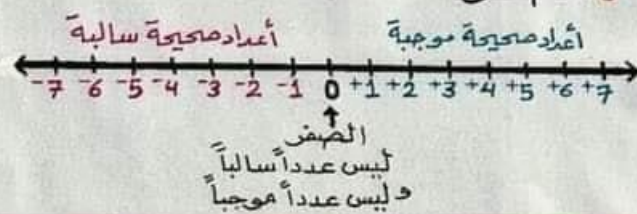 أعداد صحيحة سالبة أعداد صحيحة موجبة
-7 -6 -5 -4 -3 -2 -1 0 +1 +2 +3 +4 +5 +6 +7
الصفر
ليس عدداً سالباً
وليس عدداً موجباً